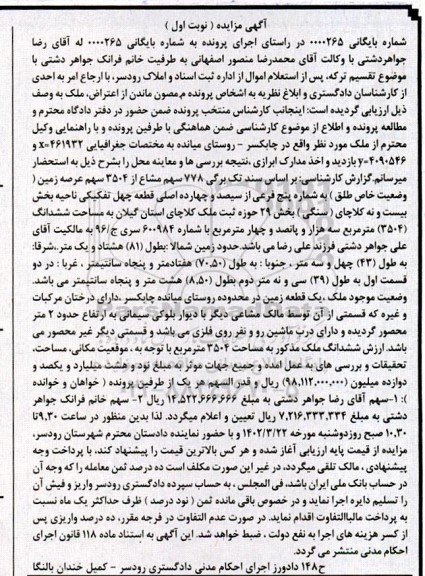 آگهی مزایده ( نوبت اول )
شماره بایگانی ۰۰۰۰۲۶۵ در راستای اجرای پرونده به شماره بایگانی ۰۰۰۰۲۶۵ له آقای رضا
جواهردشتی با وکالت آقای محمدرضا منصور اصفهانی به طرفیت خانم فرانک جواهر دشتی با
موضوع تقسیم ترکه، پس از استعلام اموال از اداره ثبت اسناد و املاک رودسر، با ارجاع امر به احدی
از کارشناسان دادگستری و ابلاغ نظریه به اشخاص پرونده و مصون ماندن از اعتراض، ملک به وصف
ذیل ارزیابی گردیده است: اینجانب کارشناس منتخب پرونده ضمن حضور در دفتر دادگاه محترم و
مطالعه پرونده و اطلاع از موضوع کارشناسی ضمن هماهنگی با طرفین پرونده و با راهنمایی وکیل
محترم از ملک مورد نظر واقع در چابکسر - روستای میانده به مختصات جغرافیایی x=۴۶۱۹۳۲ و
y=۴۰۹۰۵۴۶ بازدید و اخذ مدارک ابرازی ،نتیجه بررسی ها و معاینه محل را بشرح ذیل به استحضار
میرسانم.گزارش کارشناسی: بر اساس سند تک برگی ۷۷۸ سهم مشاع از ۳۵۰۴ سهم عرصه زمین (
وضعیت خاص طلق ) به شماره پنج فرعی از سیصد و چهارده اصلی قطعه چهل تفکیکی ناحیه بخش
بیست و نه کلاچای ( سنگی) بخش ۲۹ حوزه ثبت ملک کلاچای استان گیلان به مساحت ششدانگ
(۳۵۰۴) مترمربع سه هزار و پانصد و چهار مترمربع با شماره ۶۰۰۹۸۴ سری ج/۹۶ به مالکیت آقای
علی جواهر دشتی فرزند علی رضا می باشد.حدود زمین شمالا :بطول (۸۱) هشتاد و یک متر ،شرقا:
به طول (۴۳) چهل و سه متر ، جنوبا : به طول (۷۰,۵۰) هفتادمتر و پنجاه سانتیمتر . غربا : در دو
قسمت اول به طول (۳۹) سی و نه متر دوم بطول (۸,۵۰) هشت متر و پنجاه سانتیمتر می باشد.
وضعیت موجود ملک ،یک قطعه زمین در محدوده روستای میانده چابکسر ،دارای درختان مرکبات
و غیره که قسمتی از آن توسط مالک مشاعی دیگر با دیوار بلوکی سیمانی به ارتفاع حدود ۲ متر
محصور گردیده و دارای درب ماشین رو و نفر روی فلزی می باشد و قسمتی دیگر غیر محصور می
باشد. ارزش ششدانگ ملک مذکور به مساحت ۳۵۰۴ مترمربع با توجه به ، موقعیت مکانی، مساحت،
تحقیقات و بررسی های به عمل آمده و جمیع جهات موثر به مبلغ نود و هشت میلیارد و یکصد و
دوازده میلیون (۹۸,۱۱۲,۰۰۰,۰۰۰) ریال و قدر السهم هر یک از طرفین پرونده ( خواهان و خوانده
): ۱-سهم آقای رضا جواهر دشتی به مبلغ ۱۴,۵۲۲,۶۶۶,۶۶۶ ریال ۲- سهم خانم فرانک جواهر
دشتی به مبلغ ۷,۲۱۶,۳۳۳,۳۳۴ ریال تعیین و اعلام میگردد. لذا بدین منظور در ساعت ۹,۳۰تا
۱۰,۳۰ صبح روزدوشنبه مورخه ۱۴۰۲/۳/۲۲ و با حضور نماینده دادستان محترم شهرستان رودسر،
مزایده از قیمت پایه ارزیابی آغاز شده و هر کس بالاترین قیمت را پیشنهاد کند، با پرداخت وجه
پیشنهادی ، مالک تلقی میگردد، در غیر این صورت مکلف است ده درصد ثمن معامله را که وجه آن
در حساب بانک ملی ایران باشد، فی المجلس ، به حساب سپرده دادگستری رودسر واریز و فیش آن
را تسلیم دایره اجرا نماید و در خصوص باقی مانده ثمن ( نود درصد ) ظرف حداکثر یک ماه نسبت
به پرداخت مابالتفاوت اقدام نماید. در صورت عدم التفاوت در فرجه مقرر، ده درصد واریزی پس
از کسر هزینه های اجرا به نفع دولت ، ضبط خواهد شد. این آگهی به استناد ماده ۱۱۸ قانون اجرای
احکام مدنی منتشر می گردد.
ح۱۴۸ دادورز اجرای احکام مدنی دادگستری رودسر - کمیل خندان بالنگا